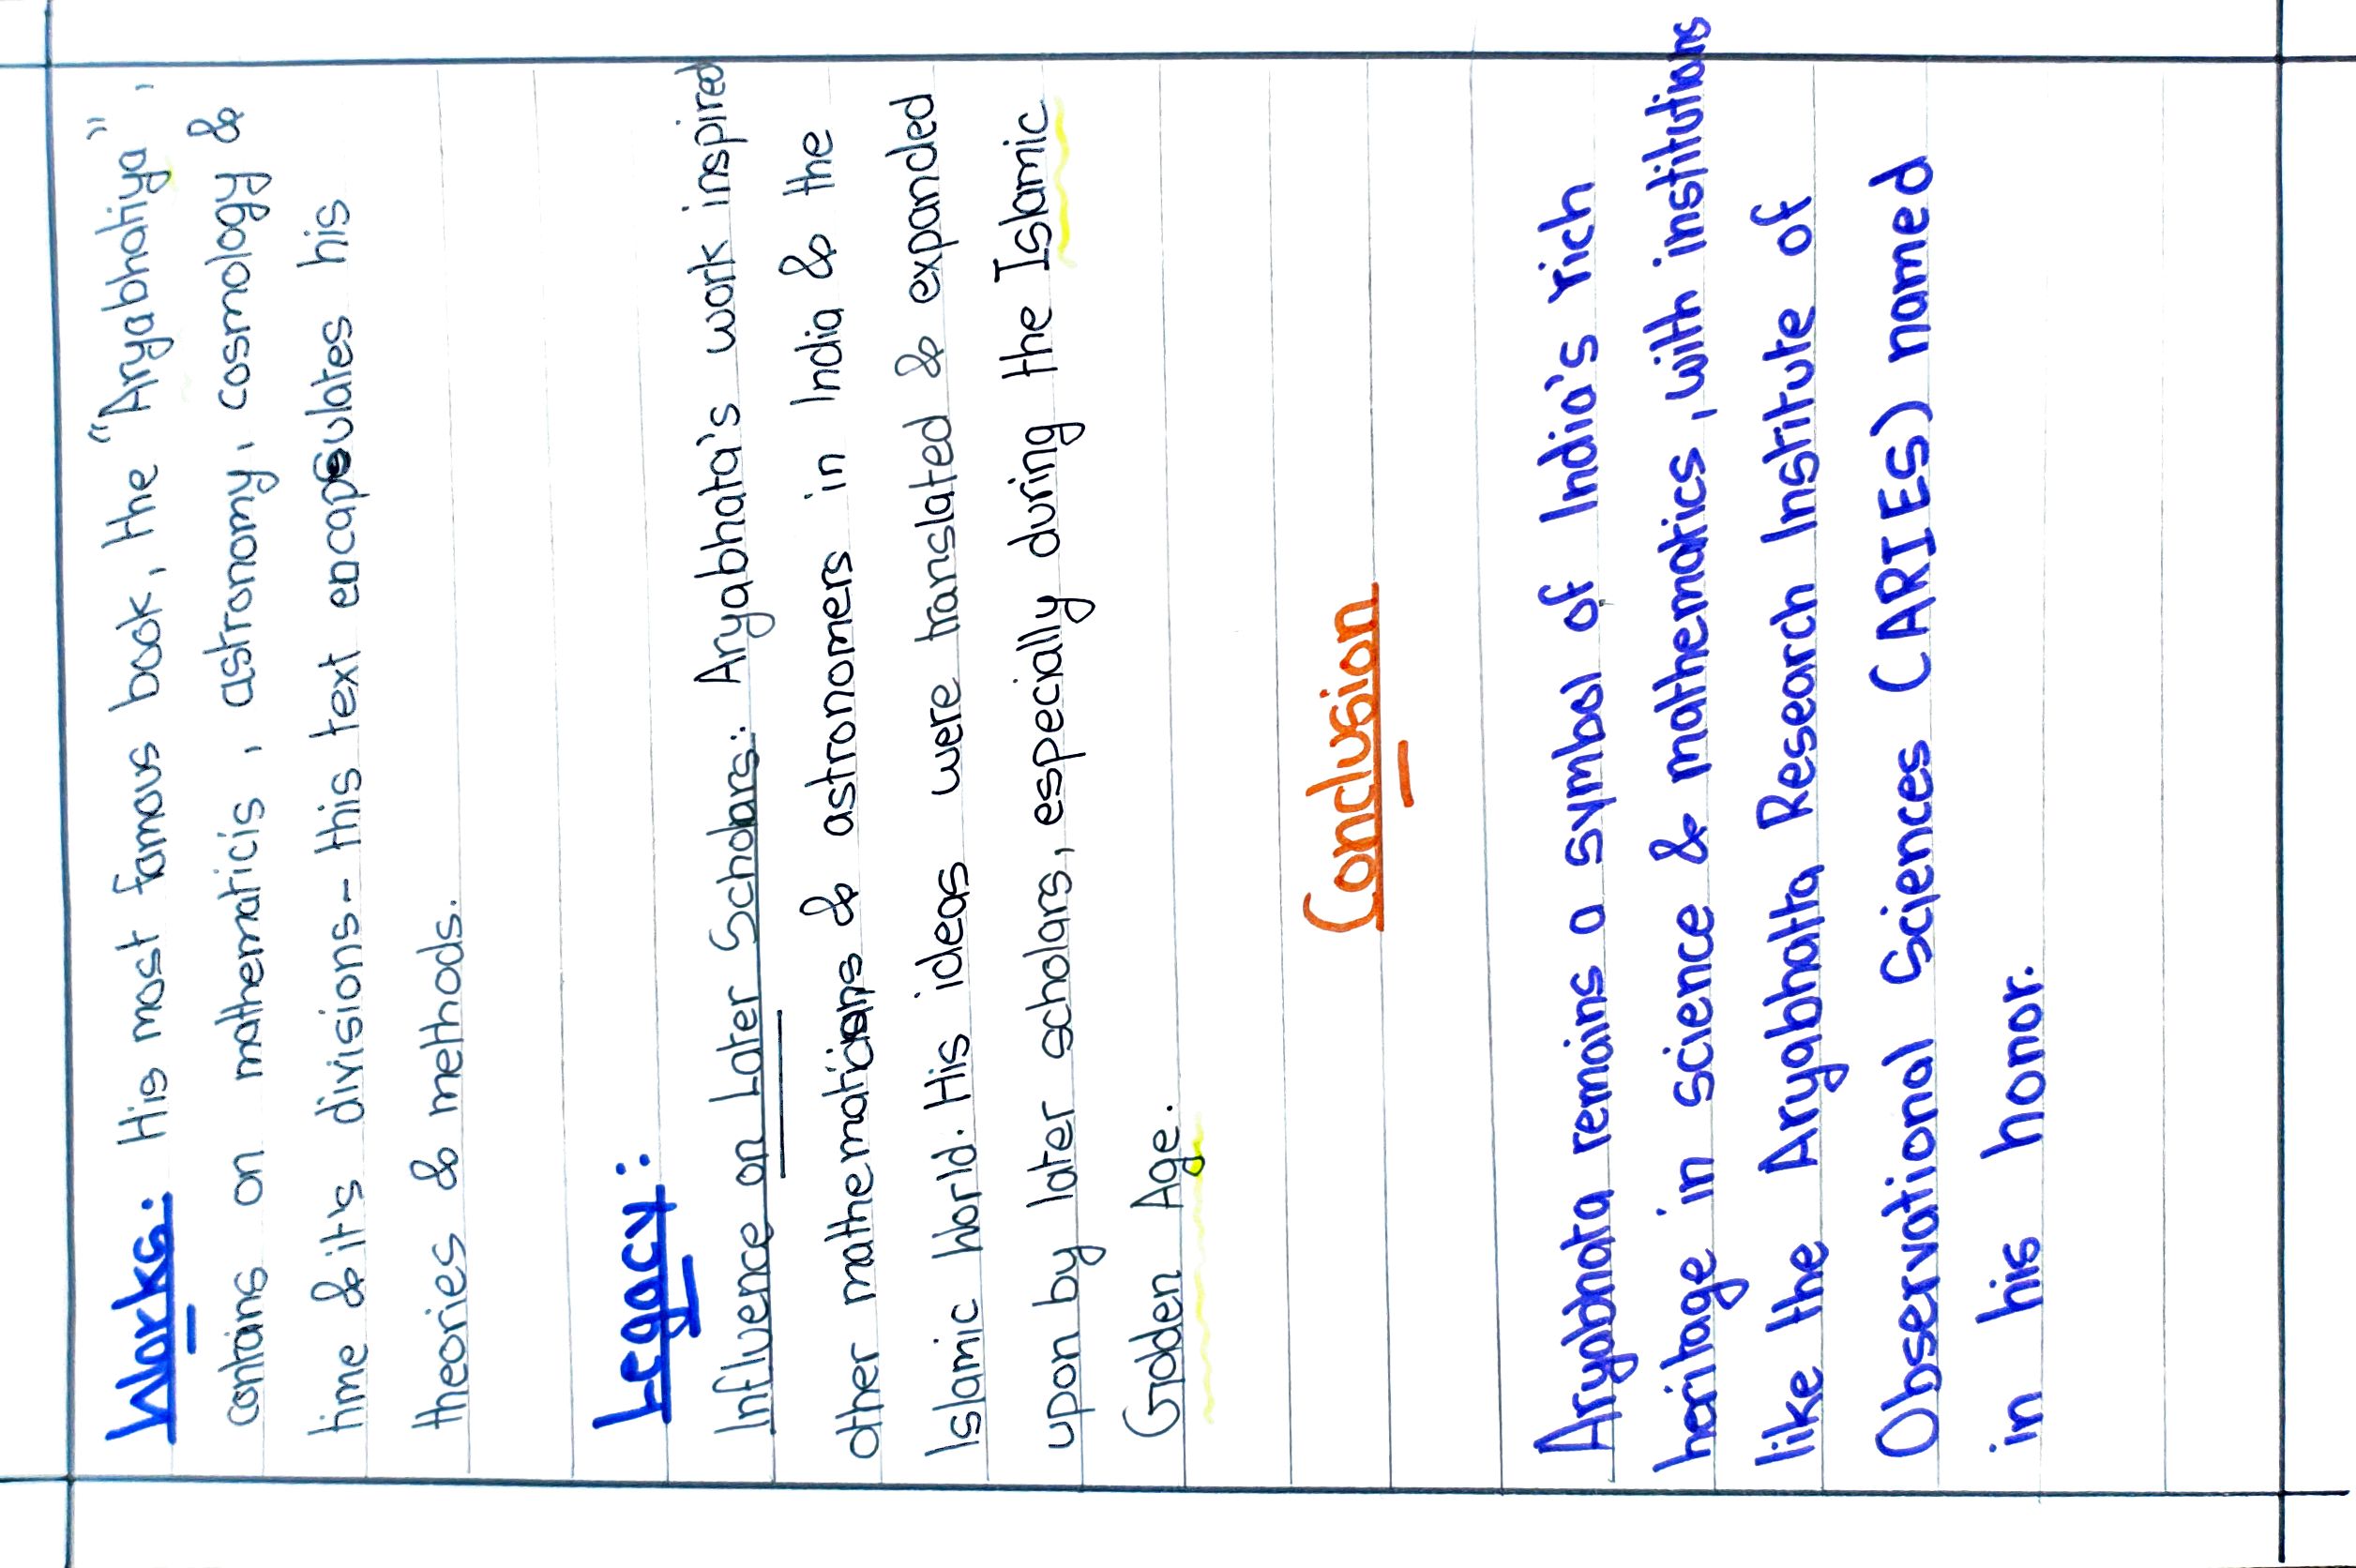 Works: His most famous book, the "Aryabhatiya",
contains on mathematicis, astronomy, cosmology &
time & it's divisions - this text encapsulates his
theories & methods.
Legacy:
Influence on Later Scholars: Aryabhata's work inspired
other mathematicians & astronomers in India & the
Islamic World. His ideas were translated & expanded
upon by later scholars, especially during the Islamic
Golden Age.
Conclusion
Aryabhata remains a symbol of India's rich
heritage in science & mathematics, with institutions
like the Aryabhatta Research Institute of
Observational Sciences (ARIES) named
in his honor.